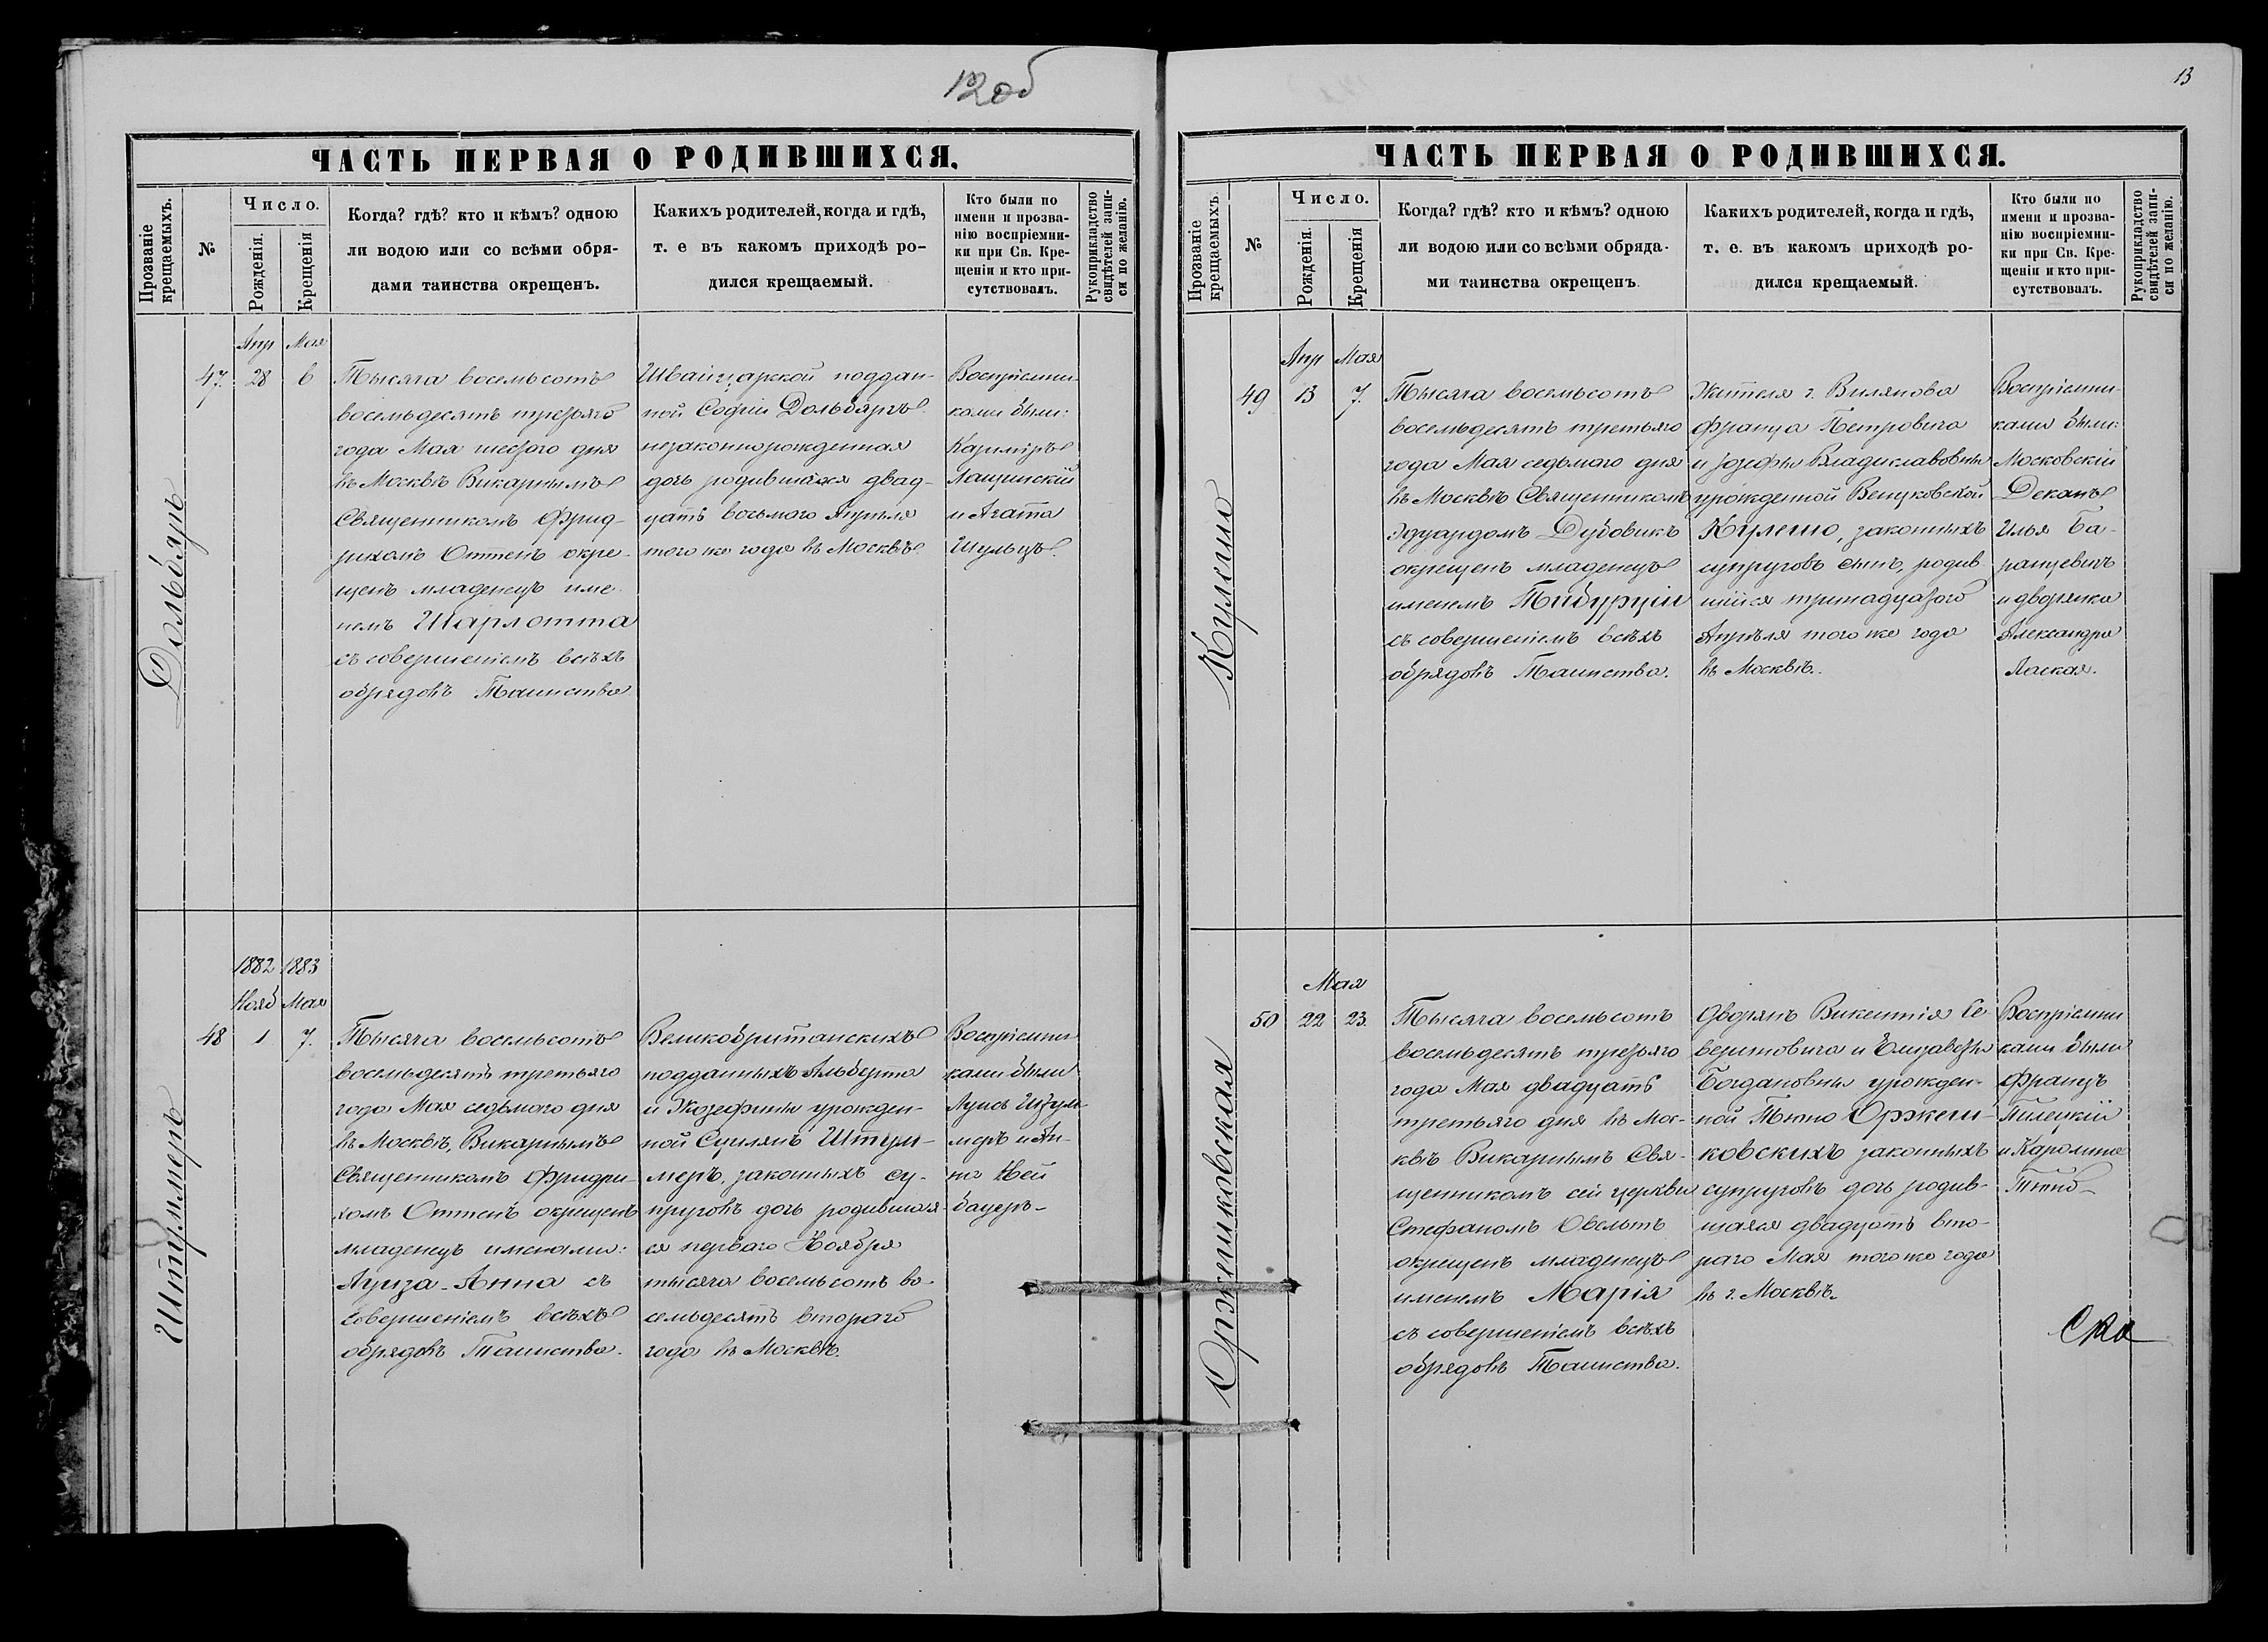 12 об
ЧАСТЬ ПЕРВАЯ О РОДИВШИХСЯ.
Прозваніе
крещаемыхъ.
№
Число.
Рожденія.
Крещенія
Когда? гдѣ? кто и кѣмъ? одною
ли водою или со всѣми обря-
дами таинства окрещенъ.
Какихъ родителей, когда и гдѣ,
т. е въ какомъ приходѣ ро-
дился крещаемый.
Кто были по
имени и прозва-
нію воспріемни-
ки при Св. Кре-
щеніи и кто при-
сутствовалъ.
Рукоприкладство
свидѣтелей запи-
си по желанію.
47.
Апр
28
Мая
6
Тысяча восемьсотъ
восемьдесятъ третьяго
года Мая шестого дня
въ Москвѣ Викарнымъ
Священникомъ Фрид-
рихомъ Оттенъ окре-
щенъ младенецъ име-
немъ Шарлотта
съ совершеніемъ всѣхъ
обрядовъ Таинства
Швейцарской поддан-
ной Софіи Дольбяръ
незаконнорожденная
дочь родившаяся двад-
цать восьмого Апрѣля
того же года въ Москвѣ
Воспріемни-
ками были:
Казиміръ
Лащинскій
и Агата
Шульцъ.
48
1882
Нояб
1
1883
Мая
7.
Штуммеръ
Тысяча восемьсотъ
восемьдесятъ третьяго
года Мая седьмого дня
въ Москвѣ, Викарнымъ
Священникомъ Фридри-
хомъ Оттенъ окрещенъ
младенецъ именами:
Луиза-Анна съ
совершеніемъ всѣхъ
обрядовъ Таинства.
Великобританскихъ
подданныхъ Альберта
и Жозефины урожден-
ной Штум-
меръ, законныхъ су-
пруговъ дочь родившая-
ся перваго Ноября
тысяча восемьсотъ во-
семьдесятъ второго
года въ Москвѣ.
Воспріемни-
ками были
Луисъ Штум-
меръ и Ан-
на Ней
бауеръ
13
ЧАСТЬ ПЕРВАЯ О РОДИВШИХСЯ.
Прозваніе
крещаемыхъ.
№
Число.
Рожденія.
Крещенія
Когда? гдѣ? кто и кѣмъ? одною
ли водою или со всѣми обряда-
ми таинства окрещенъ.
Какихъ родителей, когда и гдѣ,
т. е. въ какомъ приходѣ ро-
дился крещаемый.
Кто были по
имени и прозва-
нію воспріемни-
ки при Св. Кре-
щеніи и кто при-
сутствовалъ.
Рукоприкладство
свидѣтелей запи-
си по желанію.
Кулешо
49
Апр
13
Мая
7.
Тысяча восемьсотъ
восемьдесятъ третьяго
года Мая седьмого дня
въ Москвѣ Священникомъ
Эдуардомъ Дубовикъ
окрещенъ младенецъ
именемъ Тибурцій
съ совершеніемъ всѣхъ
обрядовъ Таинства.
Жителя г. Вилянова
Франца Петровича
и Іозефы Владиславовны
урожденной Венцковской
Кулешо, законныхъ
супруговъ сынъ, родив
шійся тринадцатого
Апрѣля того же года
въ Москвѣ.
Воспріемни-
ками были:
Московскій
Деканъ
Илья Ба-
ранцевичъ
и дворянка
Александра
Ласкал.
Оржешковская
50
Мая
22
23.
Тысяча восемьсотъ
восемьдесятъ третьяго
года Мая двадцать
третьяго дня въ Мос-
квѣ Викарнымъ Свя-
щенникомъ сей церкви
Стефаномъ Овельтъ
окрещенъ младенецъ
именемъ Марія
съ совершеніемъ всѣхъ
обрядовъ Таинства.
Дворянъ Викентія Се
вериновича и Елизаветы
Богдановны урожден-
ной Тюно Оржеш-
ковскихъ законныхъ
супруговъ дочь родив-
шаяся двадцать вто-
раго Мая того же года
въ г. Москвѣ.
Воспріемни
ками были
Францъ
Пилецкій
и Каролина